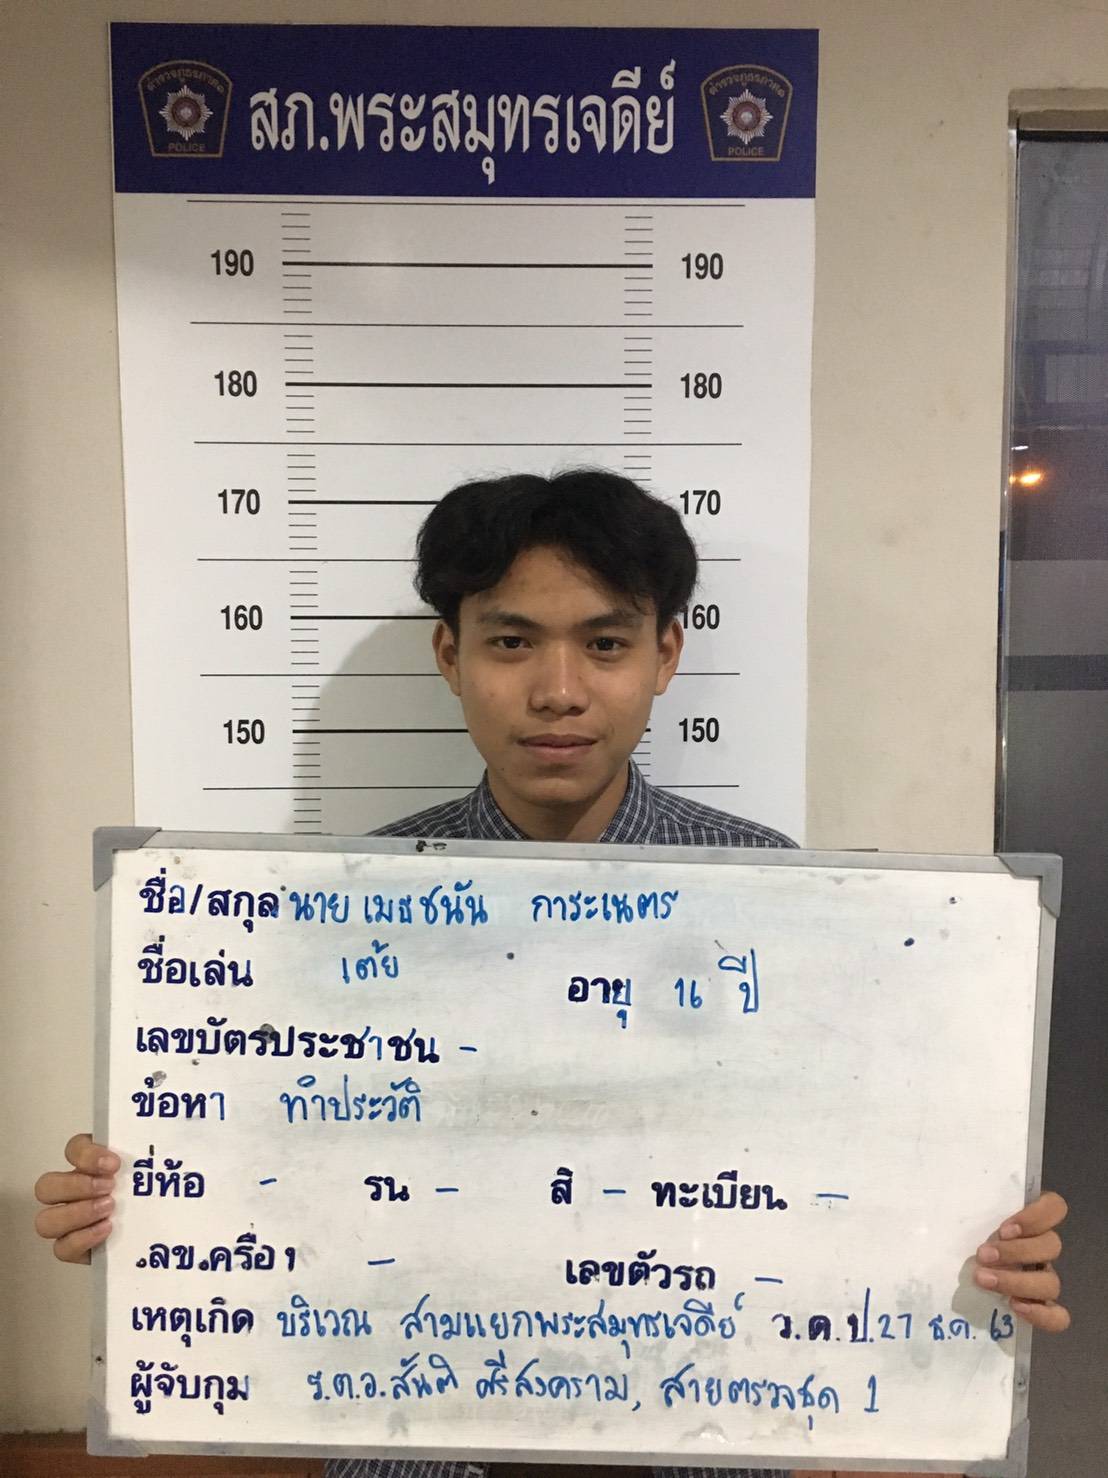 สภ.พระสมุทรเจดีย์
ตำรวจภูธรภาค๑ POLICE
ตำรวจภูธรภาค๑ POLICE
190 190
180 180
170 170
160 160
150 150
ชื่อ/สกุล นาย เมธชนัน การะเนตร
ชื่อเล่น เต้ย อายุ 16 ปี
เลขบัตรประชาชน -
ข้อหา ทำประวัติ
ยี่ห้อ - รุน - สี - ทะเบียน -
.ลข.ครื่อง - เลขตัวรถ -
เหตุเกิด บริเวณ สามแยกพระสมุทรเจดีย์ ว.ด.ป.27 ธ.ค. 63
ผู้จับกุม ร.ต.อ.สันติ ศรีสงคราม, สายตรวจชุด 1